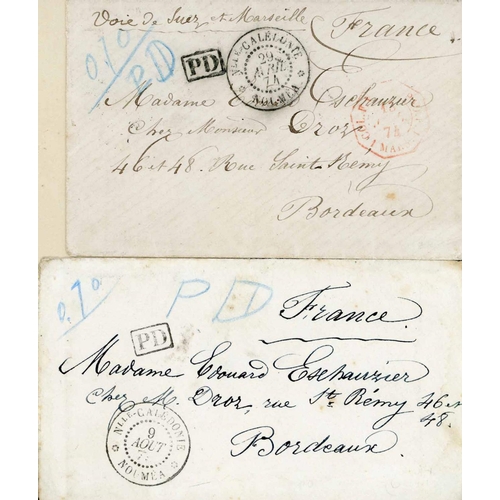 Voie de Suez et Marseille
France
0,70
PD
PD
Nlle-CALÉDONIE
29
AOUT
74
NOUMÉA
Madame E Eschauzier
Chez Monsieur Droz
74
46 et 48. Rue Saint Remy
Bordeaux
0,70
PD
France.
PD
Madame Edouard Eschauzier
chez M. Droz, rue St. Rémy 46 et
48.
Bordeaux
Nlle-CALÉDONIE
9
AOUT
NOUMÉA